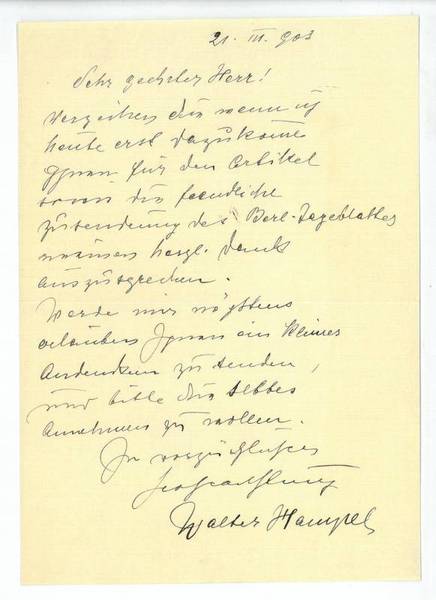 21. III. 903
Sehr geehrter Herr!
Verzeihen Sie wenn ich
heute erst dazukomme
Ihnen für den Artikel
sowie die freundliche
Zusendung des Berl. Tageblattes
meinen herzl. Dank
auszusprechen.
Werde mir nächstens
erlauben Ihnen ein kleines
Andenken zu senden,
und bitte Sie selbes
annehmen zu wollen.
In vorzüglicher
Hochachtung
Walter Hampel